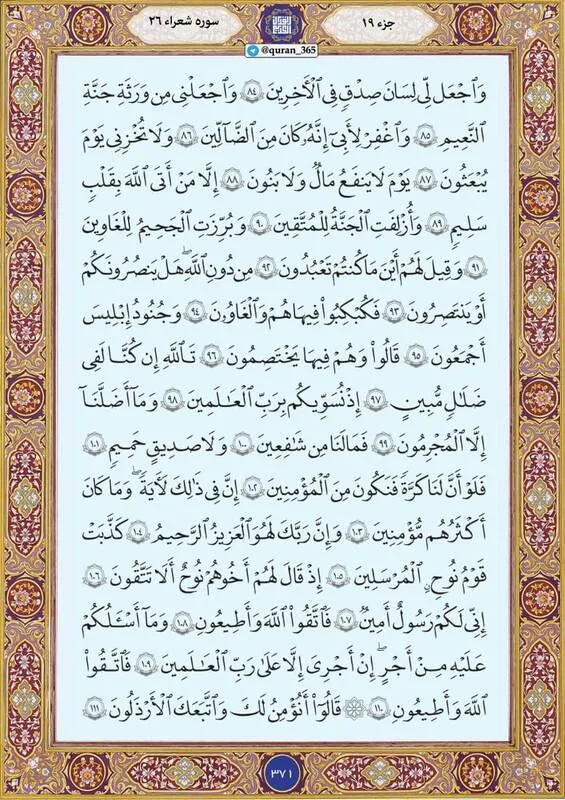 جزء ۱۹
سوره شعراء ۲۶
@quran_365
وَٱجْعَل لِّى لِسَانَ صِدْقٍ فِى ٱلْأَخِرِينَ ۝٨٤ وَٱجْعَلْنِى مِن وَرَثَةِ جَنَّةِ
ٱلنَّعِيمِ ۝٨٥ وَٱغْفِرْ لِأَبِىٓ إِنَّهُۥ كَانَ مِنَ ٱلضَّآلِّينَ ۝٨٦ وَلَا تُخْزِنِى يَوْمَ
يُبْعَثُونَ ۝٨٧ يَوْمَ لَا يَنفَعُ مَالٌ وَلَا بَنُونَ ۝٨٨ إِلَّا مَنْ أَتَى ٱللَّهَ بِقَلْبٍ
سَلِيمٍ ۝٨٩ وَأُزْلِفَتِ ٱلْجَنَّةُ لِلْمُتَّقِينَ ۝٩٠ وَبُرِّزَتِ ٱلْجَحِيمُ لِلْغَاوِينَ
۝٩١ وَقِيلَ لَهُمْ أَيْنَ مَا كُنتُمْ تَعْبُدُونَ ۝٩٢ مِن دُونِ ٱللَّهِ هَلْ يَنصُرُونَكُمْ
أَوْ يَنتَصِرُونَ ۝٩٣ فَكُبْكِبُوا۟ فِيهَا هُمْ وَٱلْغَاوُۥنَ ۝٩٤ وَجُنُودُ إِبْلِيسَ
أَجْمَعُونَ ۝٩٥ قَالُوا۟ وَهُمْ فِيهَا يَخْتَصِمُونَ ۝٩٦ تَٱللَّهِ إِن كُنَّا لَفِى
ضَلَالٍ مُّبِينٍ ۝٩٧ إِذْ نُسَوِّيكُم بِرَبِّ ٱلْعَالَمِينَ ۝٩٨ وَمَآ أَضَلَّنَآ
إِلَّا ٱلْمُجْرِمُونَ ۝٩٩ فَمَا لَنَا مِن شَافِعِينَ ۝١٠٠ وَلَا صَدِيقٍ حَمِيمٍ ۝١٠١
فَلَوْ أَنَّ لَنَا كَرَّةً فَنَكُونَ مِنَ ٱلْمُؤْمِنِينَ ۝١٠٢ إِنَّ فِى ذَٰلِكَ لَأَيَةً ۖ وَمَا كَانَ
أَكْثَرُهُم مُّؤْمِنِينَ ۝١٠٣ وَإِنَّ رَبَّكَ لَهُوَ ٱلْعَزِيزُ ٱلرَّحِيمُ ۝١٠٤ كَذَّبَتْ
قَوْمُ نُوحٍ ٱلْمُرْسَلِينَ ۝١٠٥ إِذْ قَالَ لَهُمْ أَخُوهُمْ نُوحٌ أَلَا تَتَّقُونَ ۝١٠٦
إِنِّى لَكُمْ رَسُولٌ أَمِينٌ ۝١٠٧ فَٱتَّقُوا۟ ٱللَّهَ وَأَطِيعُونِ ۝١٠٨ وَمَآ أَسْـَٔلُكُمْ
عَلَيْهِ مِنْ أَجْرٍ ۖ إِنْ أَجْرِىَ إِلَّا عَلَىٰ رَبِّ ٱلْعَالَمِينَ ۝١٠٩ فَٱتَّقُوا۟
ٱللَّهَ وَأَطِيعُونِ ۝١١٠ ۞ قَالُوٓا۟ أَنُؤْمِنُ لَكَ وَٱتَّبَعَكَ ٱلْأَرْذَلُونَ ۝١١١
۳۷۱